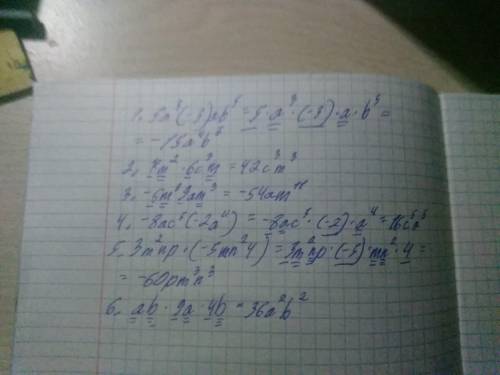 1. 5a³(-3)ab⁵ = 5·a³·(-3)·a·b⁵ =
= -15a⁴b⁵
2. 7m²·6c³m = 42c³m³
3. -6m⁸9am³ = -54am¹¹
4. -8ac⁵(-2a⁴) = -8ac⁵·(-2)·a⁴ = 16c⁵
5. 3m²np·(-5mn²4) = 3m²np·(-5)·mn²·4 =
= -60pm³n³
6. ab·9a·4b = 36a²b²